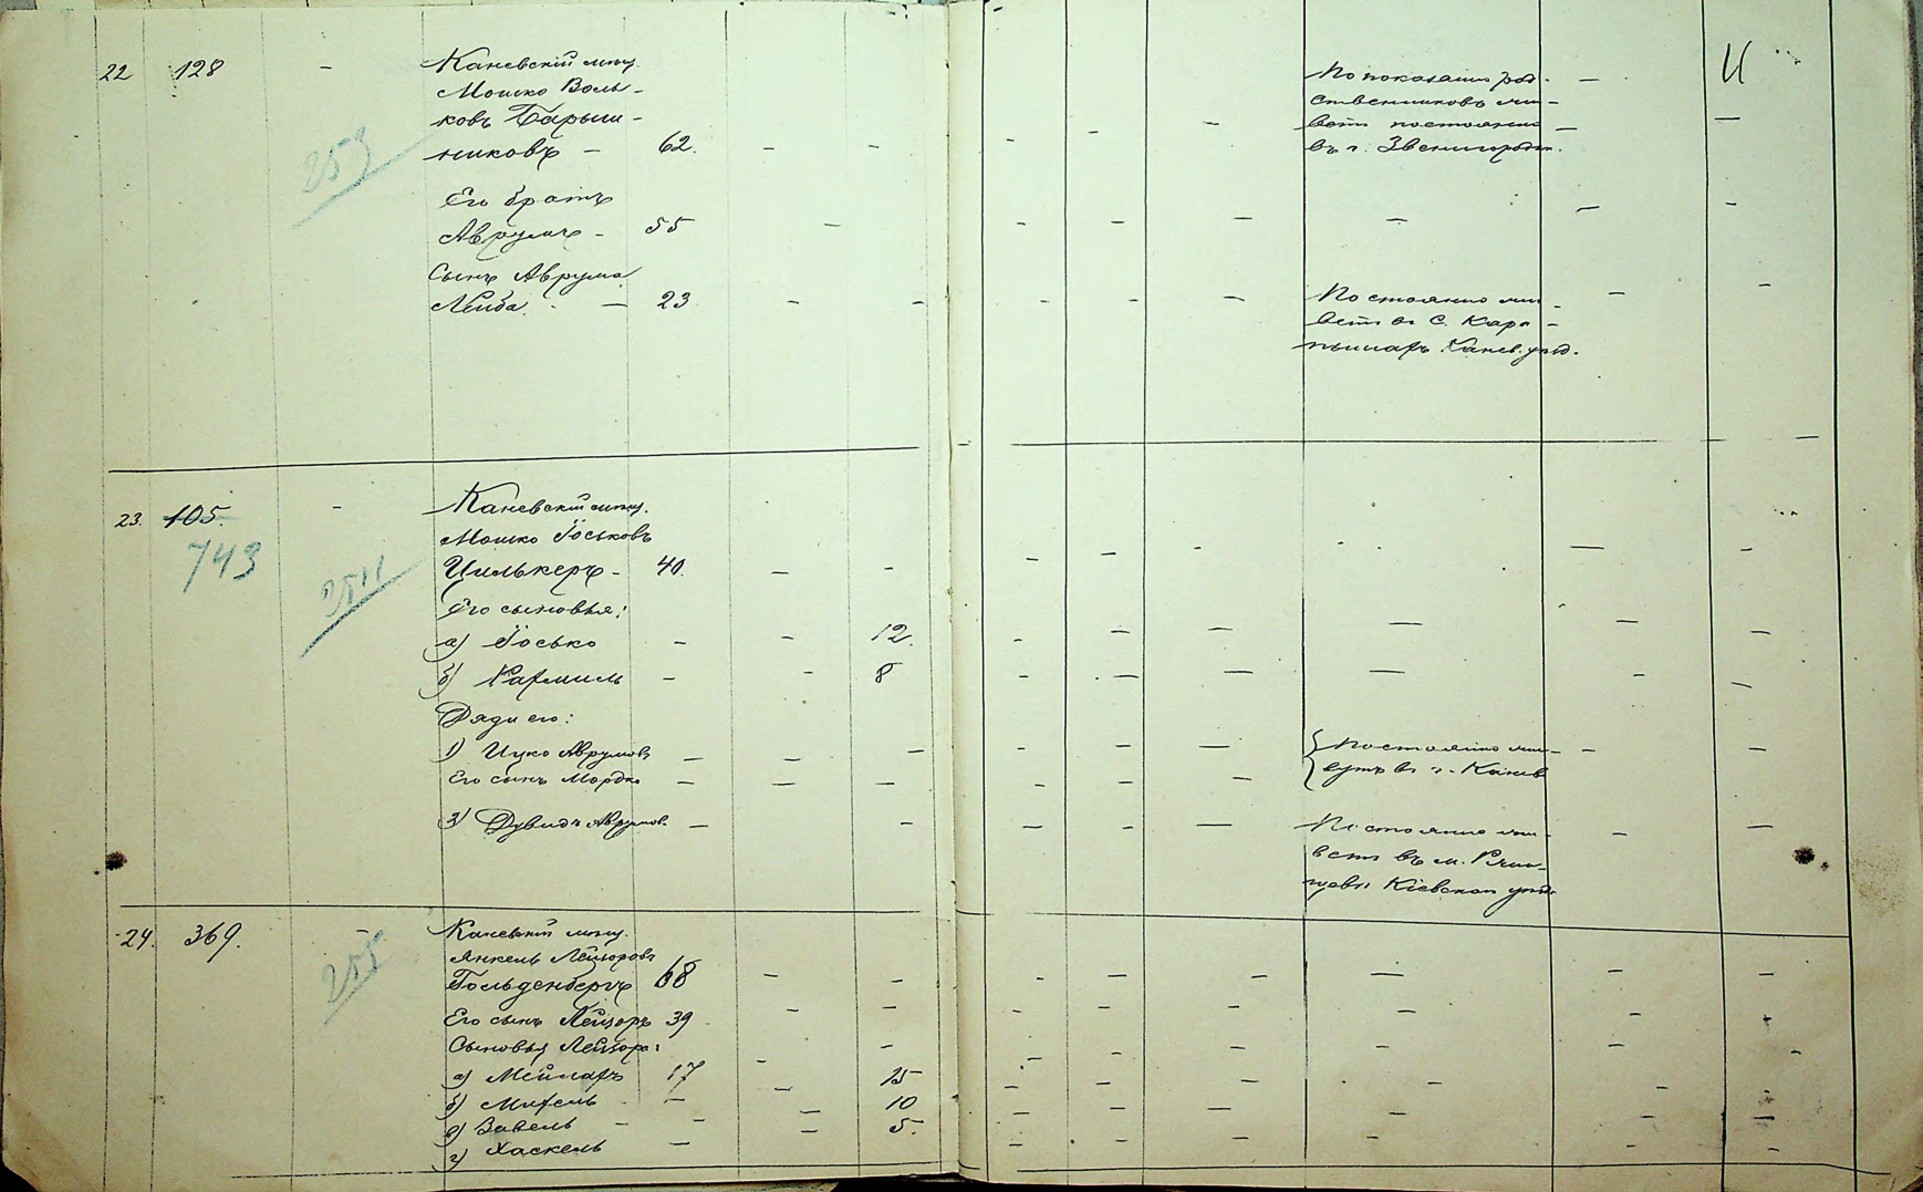 22 128 - Каневскій мѣщ.
Мошко Воль-
ковъ Барыш-
никовъ - 62. - -
253
Его братъ
Аврумъ - 55 -
Сынъ Аврума
Лейба - 23 - -
По показанію род-
ственниковъ жи-
ветъ постоянно
въ г. Звенигородкѣ.
Постоянно жи-
ветъ въ с. Кара-
пышахъ Канев. уѣзд.
23. 105. - Каневскій мѣщ.
743
Мошко Іоськовъ
Цилькеръ - 40. - -
Его сыновья:
а) Іосько - - 12.
б) Рахмиль - - 8
Дяди его:
1) Ицко Аврумовъ - - -
Его сынъ Мордко - - -
Дувидъ Аврумов. - -
Постоянно жи-
вутъ въ г. Каневѣ
Постоянно жи-
ветъ въ м. Ржи-
щевѣ Кіевскаго уѣзд.
24. 369. - Каневскій мѣщ.
255
Янкель Лейзоровъ
Гольденбергъ 68 - -
Его сынъ Лейзоръ 39 - -
Сыновья Лейзора: -
а) 17 - 15
б) - - 10
в) Завель - - - 5.
г) Хаскель -